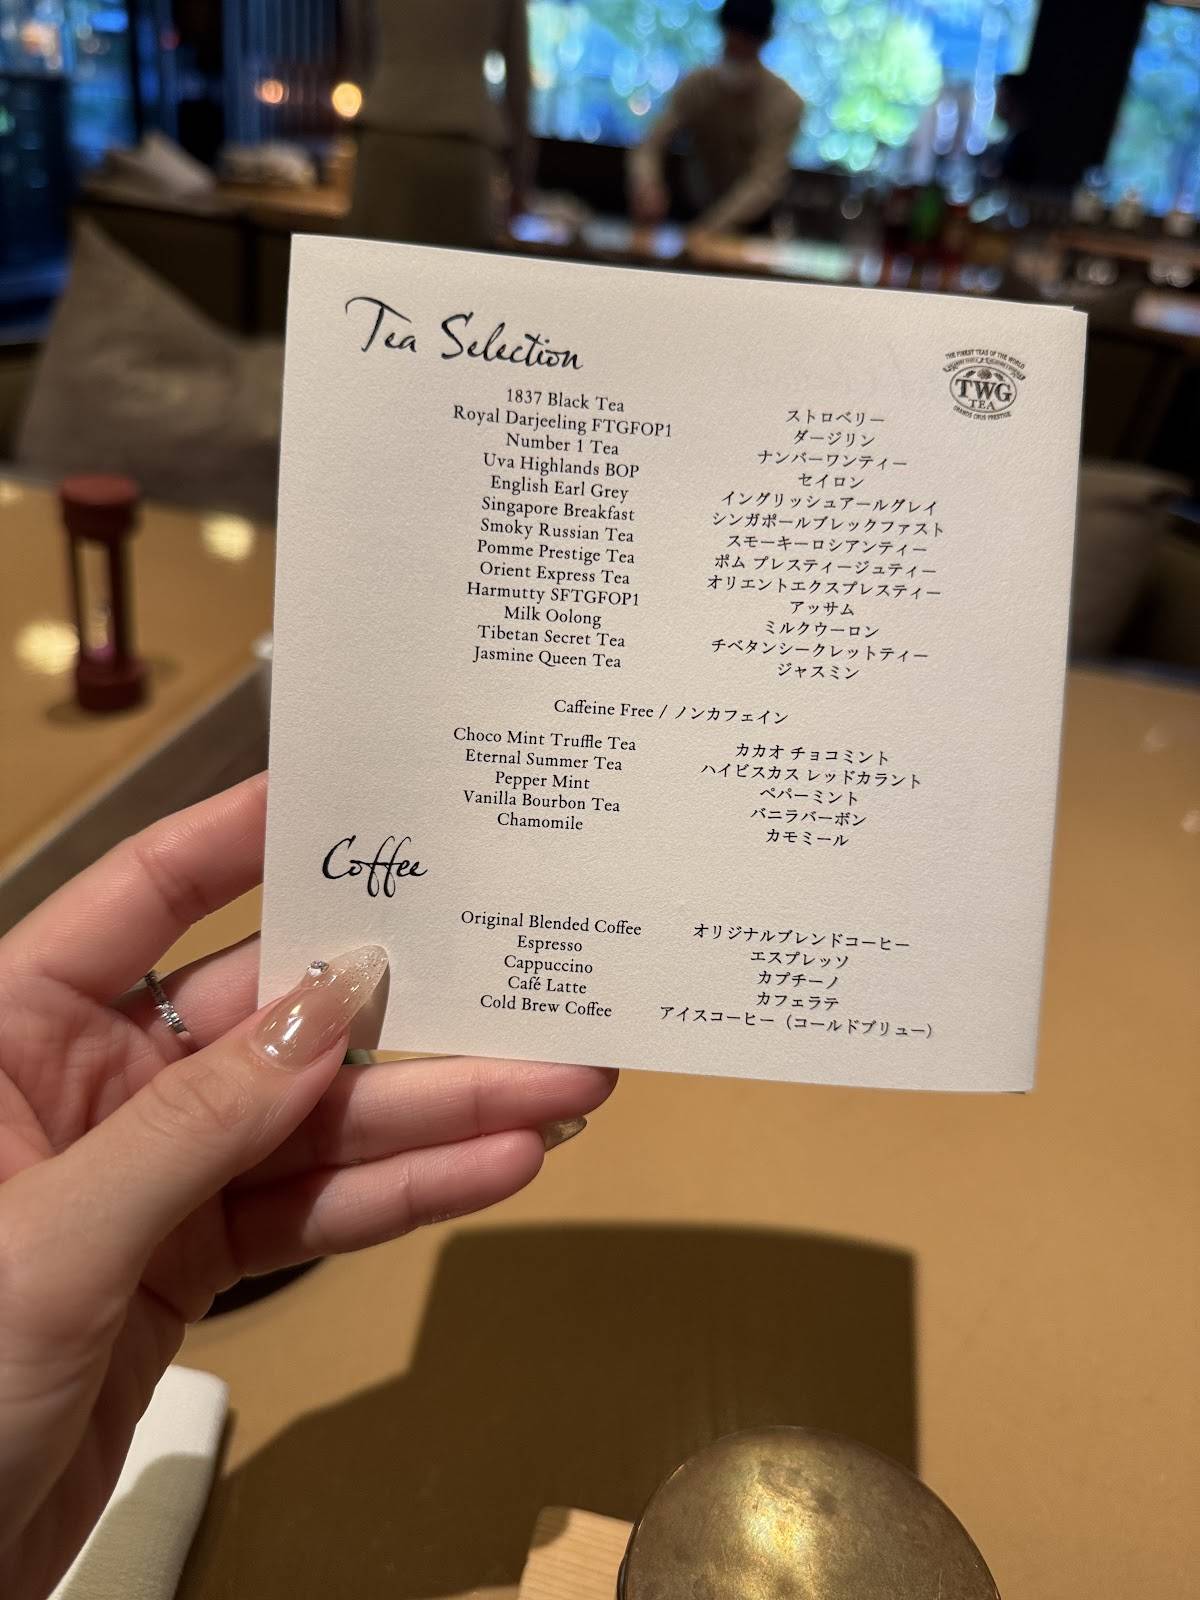 Tea Selection
THE FINEST TEAS OF THE WORLD
TWG
TEA
GRANDS CRUS PRESTIGE
1837 Black Tea ストロベリー
Royal Darjeeling FTGFOP1 ダージリン
Number 1 Tea ナンバーワンティー
Uva Highlands BOP セイロン
English Earl Grey イングリッシュアールグレイ
Singapore Breakfast シンガポールブレックファスト
Smoky Russian Tea スモーキーロシアンティー
Pomme Prestige Tea ポム プレスティージュティー
Orient Express Tea オリエントエクスプレスティー
Harmutty SFTGFOP1 アッサム
Milk Oolong ミルクウーロン
Tibetan Secret Tea チベタンシークレットティー
Jasmine Queen Tea ジャスミン
Caffeine Free / ノンカフェイン
Choco Mint Truffle Tea カカオ チョコミント
Eternal Summer Tea ハイビスカス レッドカラント
Pepper Mint ペパーミント
Vanilla Bourbon Tea バニラバーボン
Chamomile カモミール
Coffee
Original Blended Coffee オリジナルブレンドコーヒー
Espresso エスプレッソ
Cappuccino カプチーノ
Café Latte カフェラテ
Cold Brew Coffee アイスコーヒー（コールドブリュー）